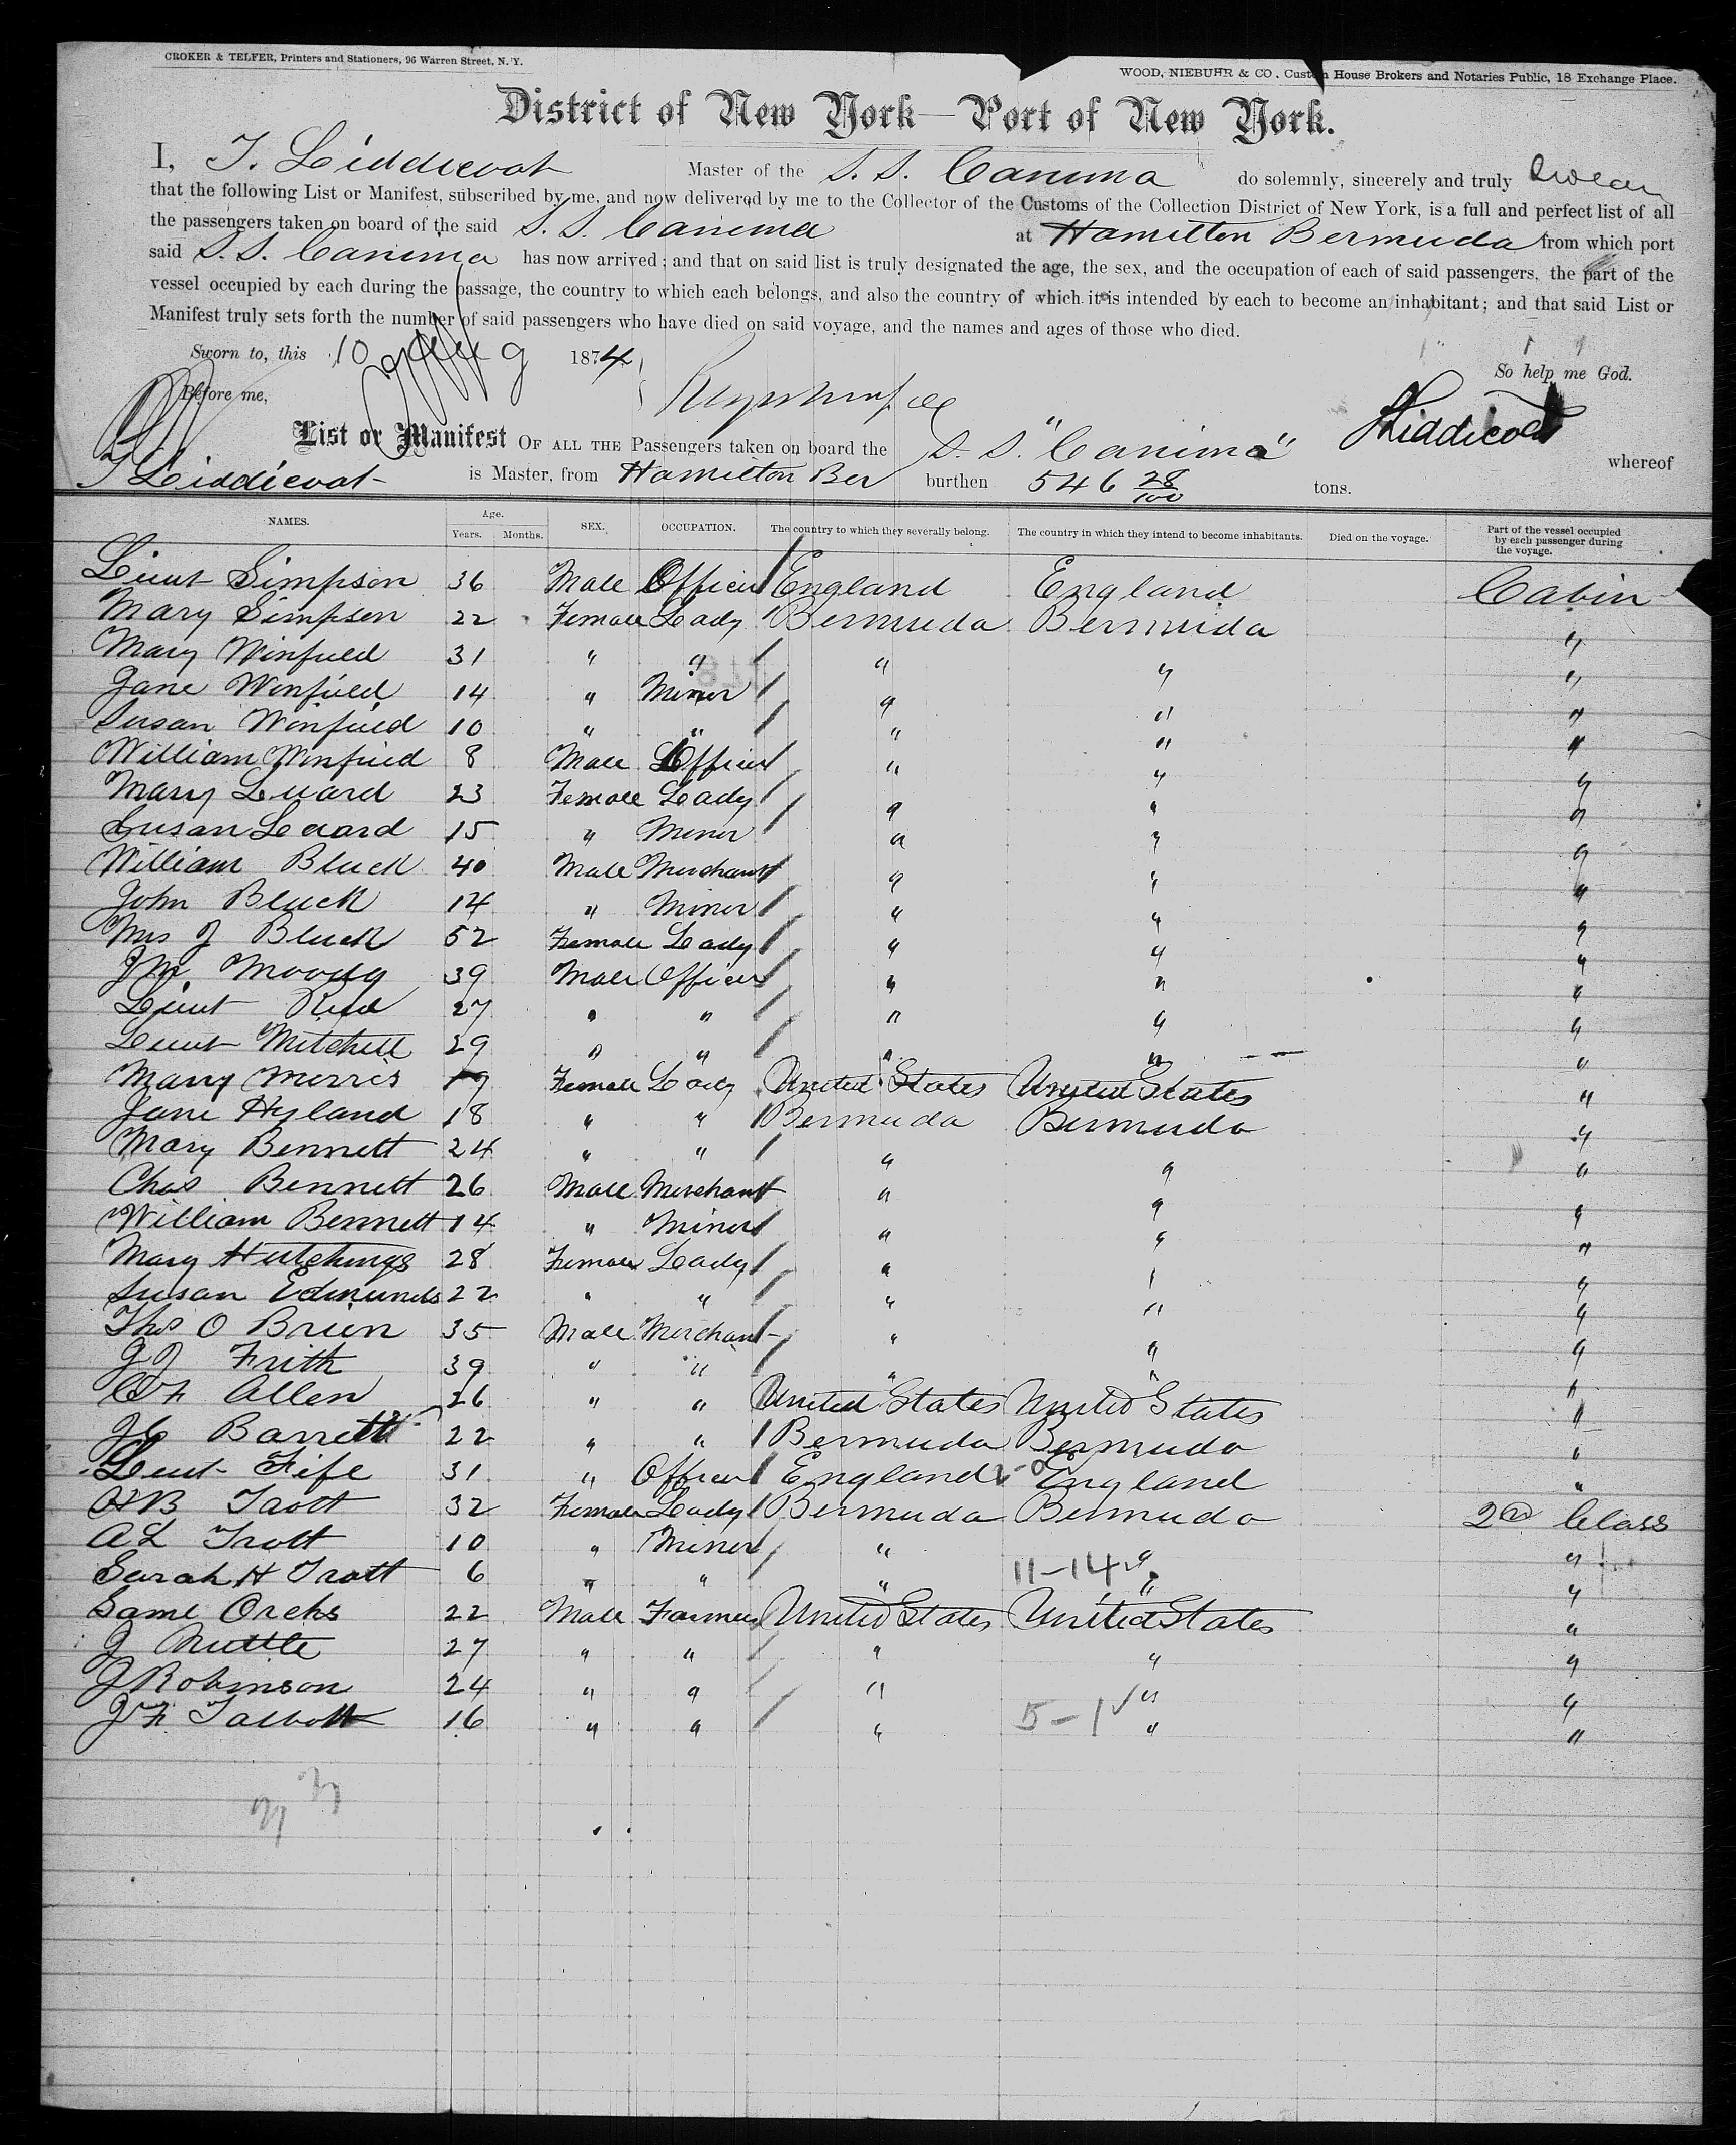 CROKER & TELFER, Printers and Stationers, 96 Warren Street, N. Y.
WOOD, NIEBUHR & CO., Custom House Brokers and Notaries Public, 18 Exchange Place.
District of New York—Port of New York.
I, T. Liddicoat Master of the S. S. Canima do solemnly, sincerely and truly swear
that the following List or Manifest, subscribed by me, and now delivered by me to the Collector of the Customs of the Collection District of New York, is a full and perfect list of all
the passengers taken on board of the said S. S. Canima at Hamilton Bermuda from which port
said S. S. Canima has now arrived; and that on said list is truly designated the age, the sex, and the occupation of each of said passengers, the part of the
vessel occupied by each during the passage, the country to which each belongs, and also the country of which it is intended by each to become an inhabitant; and that said List or
Manifest truly sets forth the number of said passengers who have died on said voyage, and the names and ages of those who died.
Sworn to, this 10 Aug 1874 So help me God.
Before me,
T Liddicoat
List or Manifest OF ALL THE Passengers taken on board the S. S. "Canima" whereof
T Liddicoat is Master, from Hamilton Ber burthen 546 28/100 tons.
NAMES. Age. Years. Months. SEX. OCCUPATION. The country to which they severally belong. The country in which they intend to become inhabitants. Died on the voyage. Part of the vessel occupied by each passenger during the voyage.
Lieut Simpson 36 Male Officer England England Cabin
Mary Simpson 22 Female Lady Bermuda Bermuda "
Mary Winfield 31 " " " " "
Jane Winfield 14 " Minor " " "
Susan Winfield 10 " " " " "
William Winfield 8 Male Officer " " "
Mary Luard 23 Female Lady " " "
Susan Luard 15 " Minor " " "
William Bluck 40 Male Merchant " " "
John Bluck 14 " Minor " " "
Mrs J Bluck 52 Female Lady " " "
J M Moody 39 Male Officer " " "
Lieut Reid 27 " " " " "
Lieut Mitchell 29 " " " " "
Mary Morris 19 Female Lady United States United States "
Jane Hyland 18 " " Bermuda Bermuda "
Mary Bennett 24 " " " " "
Chas Bennett 26 Male Merchant " " "
William Bennett 14 " Minor " " "
Mary Hutchings 28 Female Lady " " "
Susan Edmunds 22 " " " " "
Thos O Brien 35 Male Merchant " " "
J J Frith 39 " " " " "
C F Allen 26 " " United States United States "
J C Barrett 22 " " Bermuda Bermuda "
Lieut Fife 31 " Officer England England "
H B Trott 32 Female Lady Bermuda Bermuda 2nd Class
A L Trott 10 " Minor " " "
11-14
Sarah H Trott 6 " " " " "
Saml Orchs 22 Male Farmer United States United States "
J Nuttle 27 " " " " "
J Robinson 24 " " " " "
5-1
J F Talbott 16 " " " " "